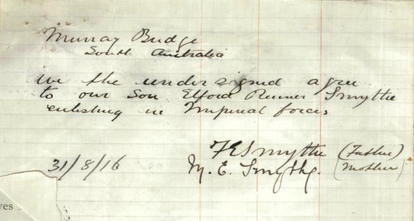 Murray Bridge
South Australia
We the undersigned agree
to our Son Elford Smythe
enlisting in Imperial forces
31/8/16
F E Smythe (Father)
M. E. Smythe (Mother)
ves